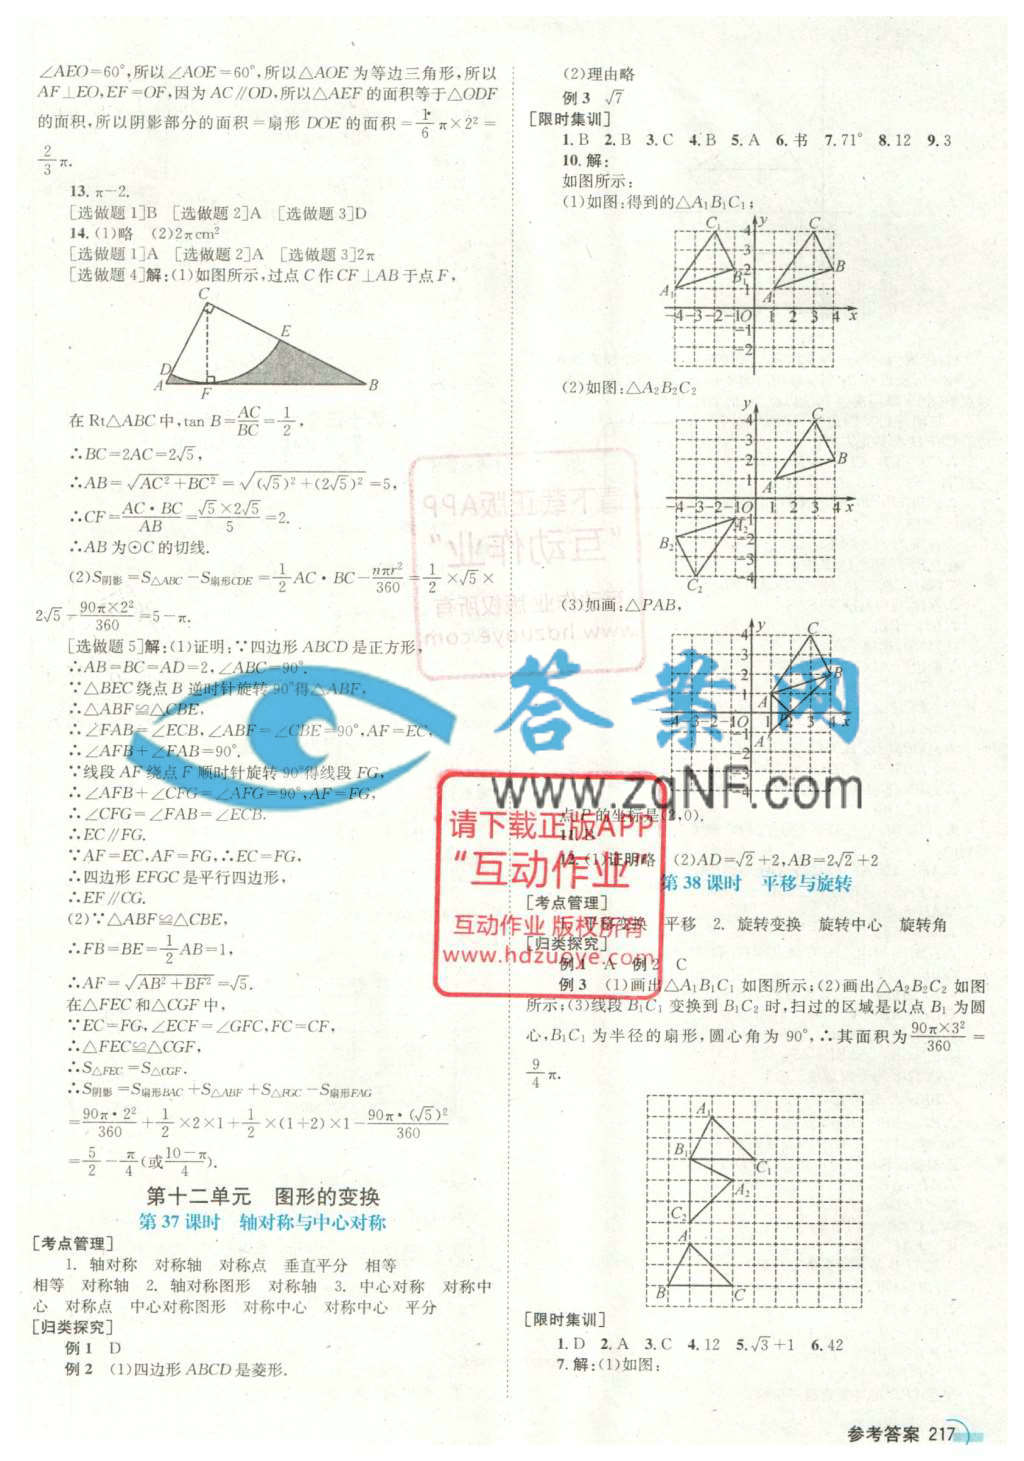 ∠AEO=60°,所以∠AOE=60°,所以△AOE 为等边三角形,所以
AF⊥EO,EF=OF,因为 AC∥OD,所以△AEF 的面积等于△ODF
的面积,所以阴影部分的面积=扇形 DOE 的面积=1/6 π×2²=
2/3 π.
13. π-2.
[选做题 1]B [选做题 2]A [选做题 3]D
14. (1)略 (2)2π cm²
[选做题 1]A [选做题 2]A [选做题 3]2π
[选做题 4]解:(1)如图所示,过点 C 作 CF⊥AB 于点 F,
C
E
D
A F B
在 Rt△ABC 中,tan B=AC/BC=1/2,
∴BC=2AC=2√5,
∴AB=√(AC²+BC²)=√((√5)²+(2√5)²)=5,
∴CF=AC·BC/AB=√5×2√5/5=2.
∴AB 为⊙C 的切线.
(2)S阴影=S△ABC-S扇形CDE=1/2 AC·BC-nπr²/360=1/2×√5×
2√5-90π×2²/360=5-π.
[选做题 5]解:(1)证明:∵四边形 ABCD 是正方形,
∴AB=BC=AD=2,∠ABC=90°.
∵△BEC 绕点 B 逆时针旋转 90°得△ABF,
∴△ABF≌△CBE,
∴∠FAB=∠ECB,∠ABF=∠CBE=90°,AF=EC,
∴∠AFB+∠FAB=90°.
∵线段 AF 绕点 F 顺时针旋转 90°得线段 FG,
∴∠AFB+∠CFG=∠AFG=90°,AF=FG,
∴∠CFG=∠FAB=∠ECB.
∴EC∥FG.
∵AF=EC,AF=FG,∴EC=FG,
∴四边形 EFGC 是平行四边形,
∴EF∥CG.
(2)∵△ABF≌△CBE,
∴FB=BE=1/2 AB=1,
∴AF=√(AB²+BF²)=√5.
在△FEC 和△CGF 中,
∵EC=FG,∠ECF=∠GFC,FC=CF,
∴△FEC≌△CGF,
∴S△FEC=S△CGF.
∴S阴影=S扇形BAC+S△ABF+S△FGC-S扇形FAG
=90π·2²/360+1/2×2×1+1/2×(1+2)×1-90π·(√5)²/360
=5/2-π/4(或(10-π)/4).
第十二单元 图形的变换
第 37 课时 轴对称与中心对称
[考点管理]
1. 轴对称 对称轴 对称点 垂直平分 相等
相等 对称轴 2. 轴对称图形 对称轴 3. 中心对称 对称中
心 对称点 中心对称图形 对称中心 对称中心 平分
[归类探究]
例 1 D
例 2 (1)四边形 ABCD 是菱形.
(2)理由略
例 3 √7
[限时集训]
1. B 2. B 3. C 4. B 5. A 6. 书 7. 71° 8. 12 9. 3
10. 解:
如图所示:
(1)如图:得到的△A₁B₁C₁;
(2)如图:△A₂B₂C₂
(3)如画:△PAB,
点 P 的坐标是(2,0).
12. (1)证明略 (2)AD=√2+2,AB=2√2+2
第 38 课时 平移与旋转
[考点管理]
1. 平移变换 平移 2. 旋转变换 旋转中心 旋转角
[归类探究]
例 1 A 例 2 C
例 3 (1)画出△A₁B₁C₁ 如图所示;(2)画出△A₂B₂C₂ 如图
所示;(3)线段 B₁C₁ 变换到 B₁C₂ 时,扫过的区域是以点 B₁ 为圆
心,B₁C₁ 为半径的扇形,圆心角为 90°,∴其面积为90π×3²/360=
9/4 π.
A₁
B₁ C₁
A₂
C₂
A
B C
[限时集训]
1. D 2. A 3. C 4. 12 5. √3+1 6. 42
7. 解:(1)如图:
答案网
www.zqNF.com
请下载正版APP
“互动作业”
互动作业 版权所有
www.hdzuoye.com
参考答案 217